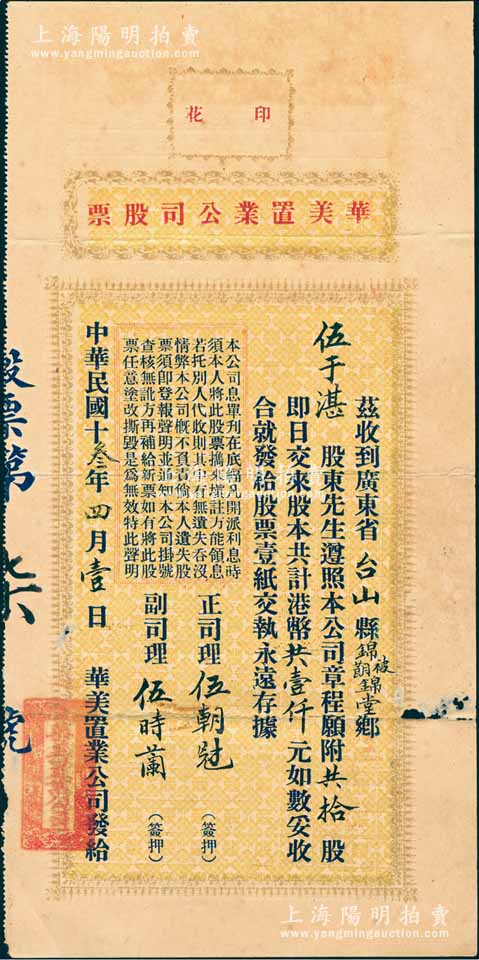 上海陽明拍賣
www.yangmingauction.com
印花
華美置業公司股票
茲收到廣東省台山縣錦被朗錦堂鄉
伍于湛股東先生遵照本公司章程願附共拾股
即日交來股本共計港幣共壹仟元如數妥收
合就發給股票壹紙交執永遠存據
正司理伍朝(簽押)
副司理伍時蘭(簽押)
本公司息單刋在底幅凡開派利息時
須本人將此股票攜來填註方能領息
若托別人代收則其人有無遺失吞沒
情弊本公司概不負責倘本人遺失股
票須即登報聲明並通知本公司掛號
查核無訛方再補給新票如有將此股
票任意塗改撕毀是為無效特此聲明
中華民國十叁年四月壹日
華美置業公司發給
股票第 號
上海陽明拍賣
www.yangmingauction.com